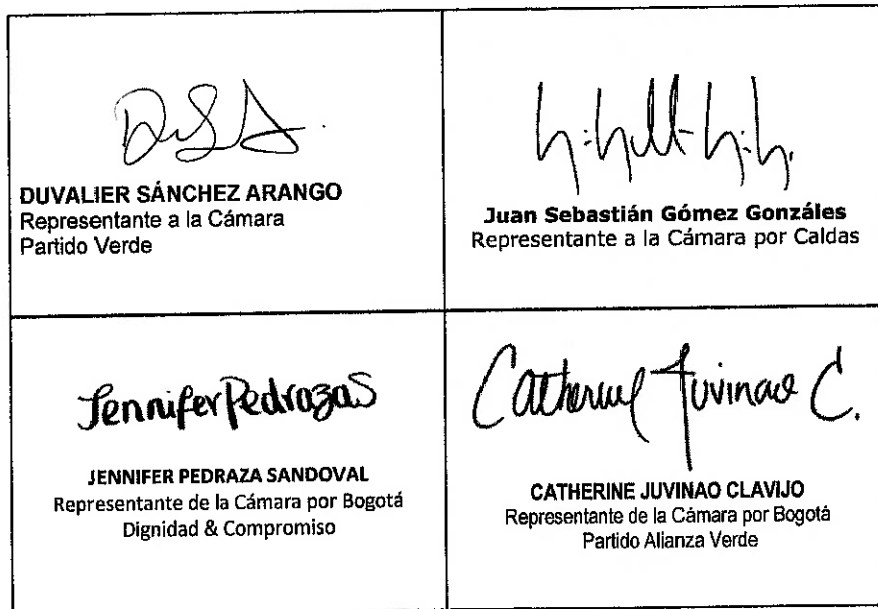 DUVALIER SÁNCHEZ ARANGO
Representante a la Cámara
Partido Verde
Juan Sebastián Gómez Gonzáles
Representante a la Cámara por Caldas
Jennifer Pedraza S
JENNIFER PEDRAZA SANDOVAL
Representante de la Cámara por Bogotá
Dignidad & Compromiso
Catherine Juvinao C.
CATHERINE JUVINAO CLAVIJO
Representante de la Cámara por Bogotá
Partido Alianza Verde